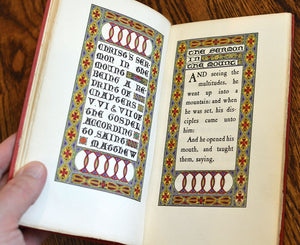 CHRIST'S SER-
MON IN THE
MOUNT
BEING A RE-
PRINT OF
CHAPTERS
V VI & VII OF
THE GOSPEL
ACCORDING
TO SAINT
MATTHEW
THE SERMON
IN
THE MOUNT
AND seeing the
multitudes, he
went up into a
mountain: and when
he was set, his dis-
ciples came unto
him:
And he opened his
mouth, and taught
them, saying,